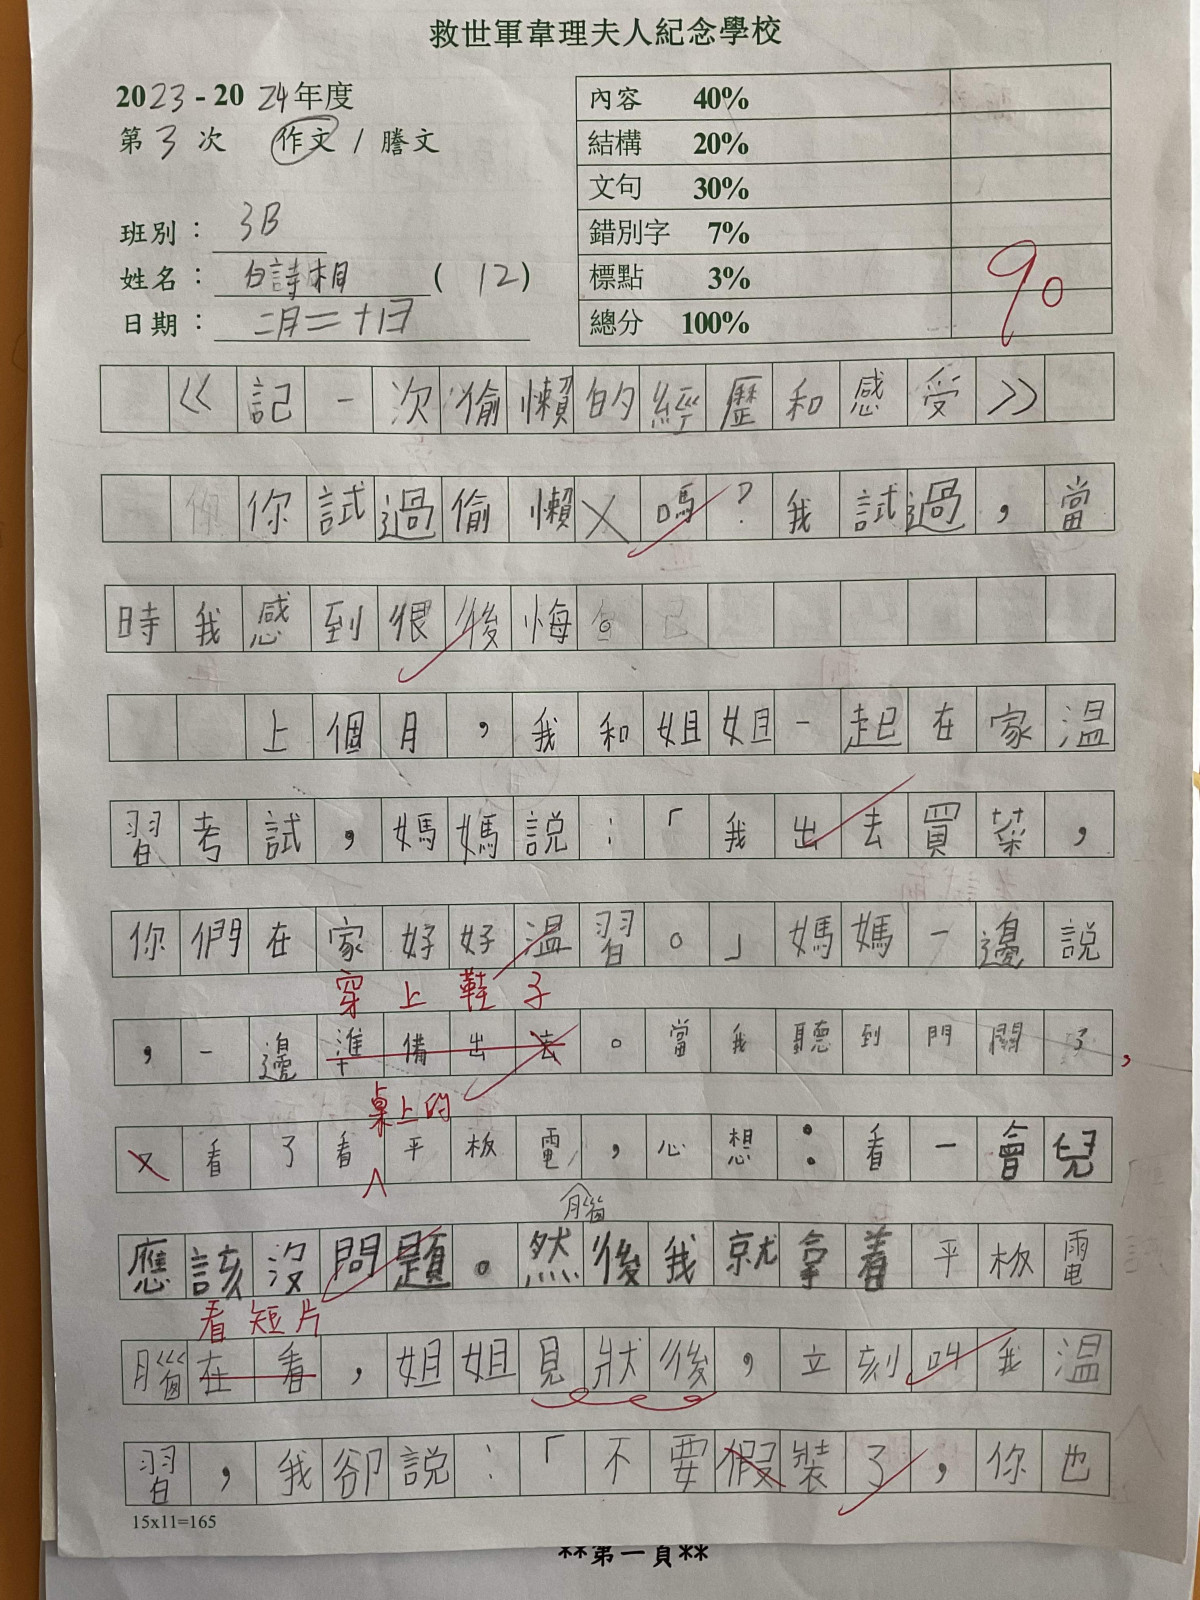 救世軍韋理夫人紀念學校
2023 - 2024年度
第3次 作文 / 謄文
班別：3B
姓名：白詩桐 (12)
日期：二月二十日
內容 40%
結構 20%
文句 30%
錯別字 7%
標點 3%
總分 100%
90
《記一次偷懶的經歷和感受》
你試過偷懶嗎？我試過，當
時我感到很後悔
上個月，我和姐姐一起在家溫
習考試，媽媽說：「我出去買菜，
你們在家好好溫習。」媽媽一邊說
穿上鞋子
，一邊準備出去。當我聽到門關了，
桌上的
又看了看平板電，心想：看一會兒
腦
應該沒問題。然後我就拿着平板電
看短片
腦在看，姐姐見狀後，立刻叫我溫
習，我卻說：「不要假裝了，你也
15x11=165
**第一頁**